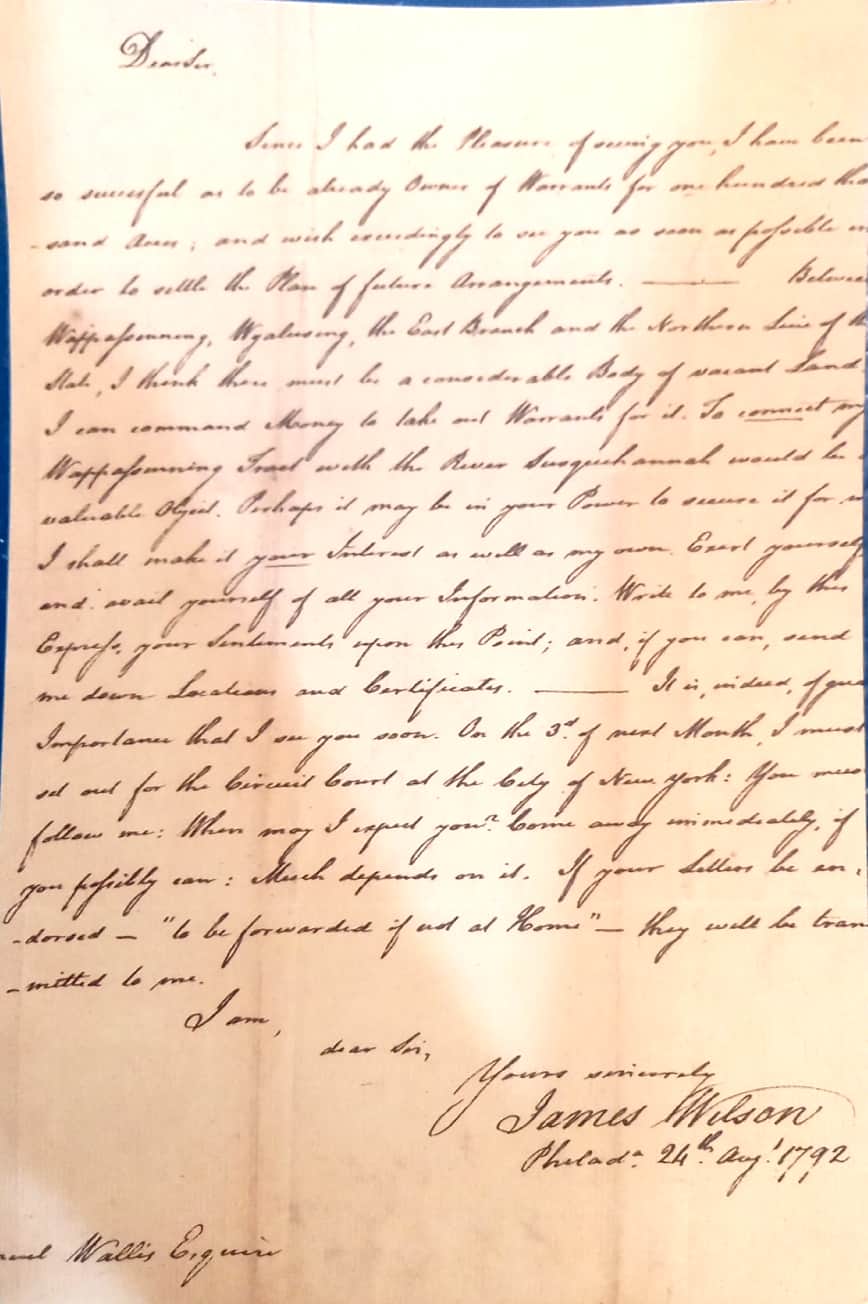 Dear Sir,
Since I had the Pleasure of seeing you, I have been
so successful as to be already Owner of Warrants for one hundred thou
-sand Acres; and wish exceedingly to see you as soon as possible in
order to settle the Plan of future Arrangements. —— Between
Wappassinning, Wyalusing, the East Branch and the Northern Line of th
State, I think there must be a considerable Body of vacant Land.
I can command Money to take out Warrants for it. To connect my
Wappassinning Tract with the River Susquehannah would be a
valuable Object. Perhaps it may be in your Power to secure it for
I shall make it your Interest as well as my own. Exert yourself
and avail yourself of all your Information. Write to me, by this
Express, your Sentiments upon this Point; and, if you can, send
me down Locations and Certificates. —— It is, indeed, of grea
Importance that I see you soon. On the 3d. of next Month, I must
set out for the Circuit Court at the City of New York: You mus
follow me: When may I expect you? Come away immediately, if
you possibly can: Much depends on it. If your Letters be en-
-dorsed — "to be forwarded if not at Home" — they will be tran
-mitted to me.
I am,
dear Sir,
Yours sincerely
James Wilson
Philada. 24th. Augt. 1792
muel Wallis Esquire